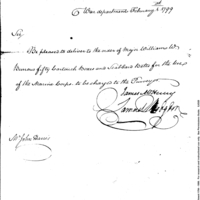 War department February 6th 1799
Sir,
Be pleased to deliver to the order of Major William W.
Burrows fifty Cartouch Boxes and Scabbard Belts for the use
of the Marine Corps to be charged to the
James McHenry
Samuel Hodgdon
Mr John Harris